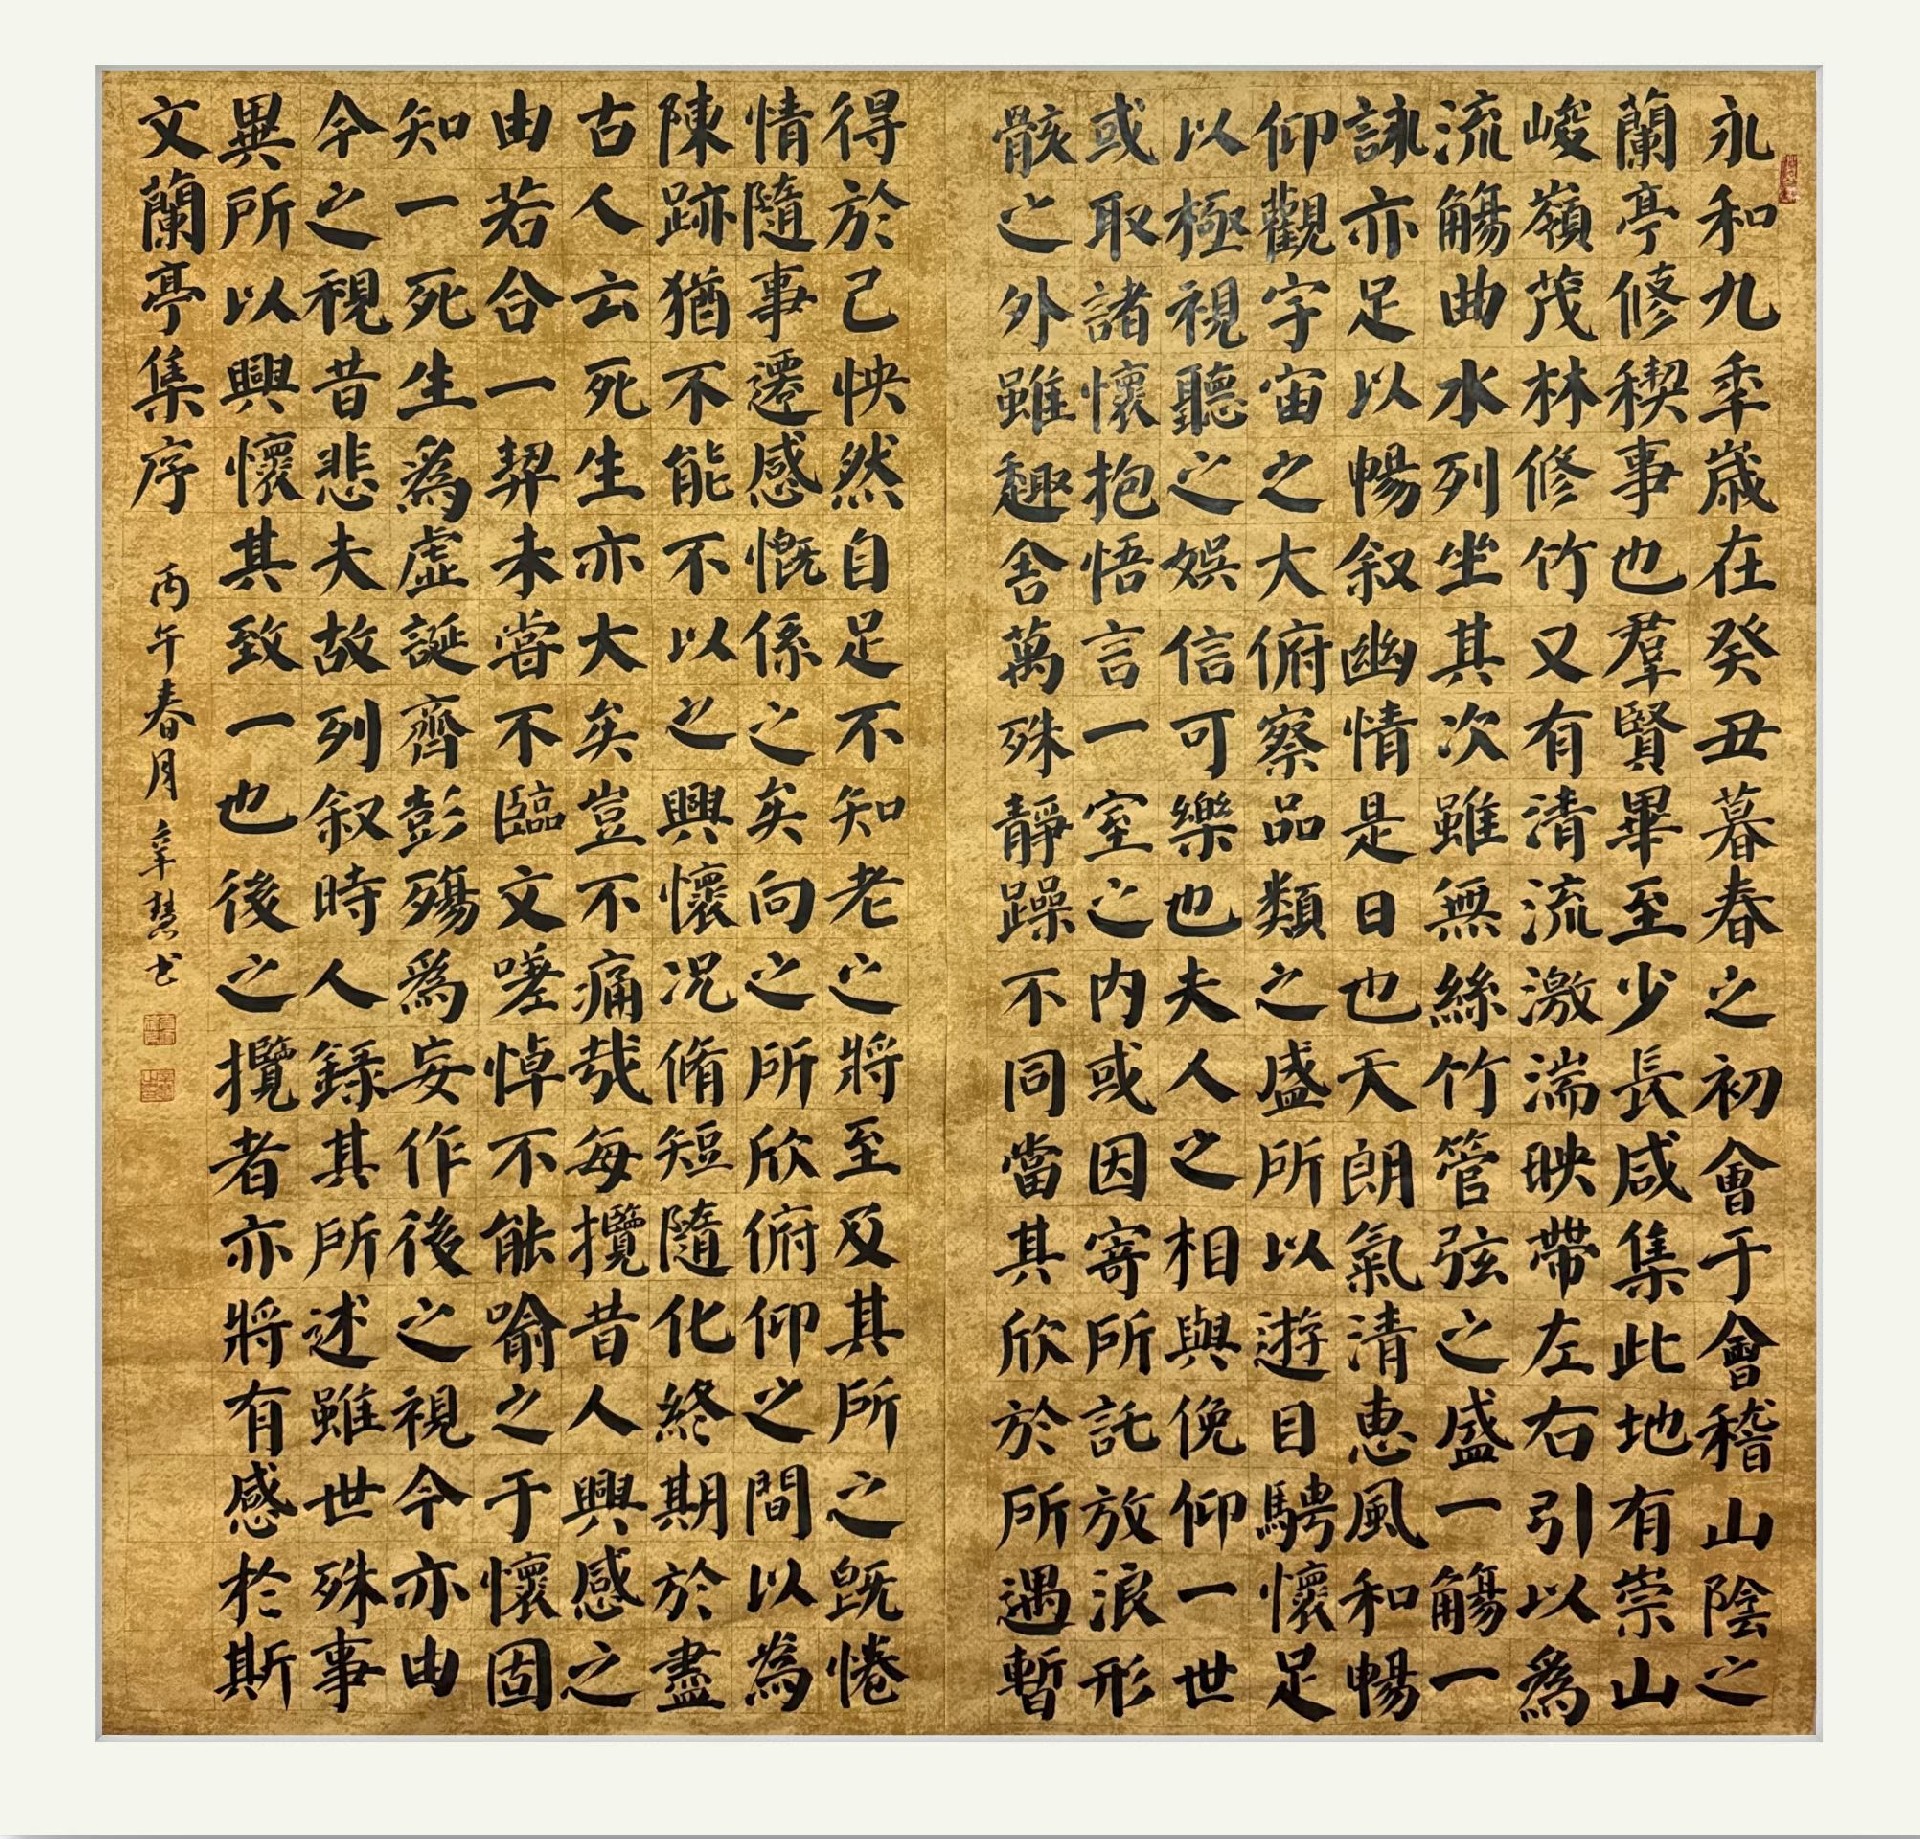 永和九秊歲在癸丑暮春之初會于會稽山陰之
蘭亭修稧事也羣賢畢至少長咸集此地有崇山
峻嶺茂林修竹又有清流激湍映帶左右引以為
流觴曲水列坐其次雖無絲竹管弦之盛一觴一
詠亦足以暢叙幽情是日也天朗氣清惠風和暢
仰觀宇宙之大俯察品類之盛所以遊目騁懷足
以極視聽之娛信可樂也夫人之相與俛仰一世
或取諸懷抱悟言一室之内或因寄所託放浪形
骸之外雖趣舍萬殊靜躁不同當其欣於所遇暫
得於己怏然自足不知老之將至及其所之既惓
情隨事遷感慨係之矣向之所欣俯仰之間以為
陳跡猶不能不以之興懷况脩短隨化終期於盡
古人云死生亦大矣豈不痛哉每攬昔人興感之
由若合一契未嘗不臨文嗟悼不能喻之于懷固
知一死生為虛誕齊彭殤為妄作後之視今亦由
今之視昔悲夫故列叙時人錄其所述雖世殊事
異所以興懷其致一也後之攬者亦將有感於斯
文蘭亭集序 丙午春月 辛慧书